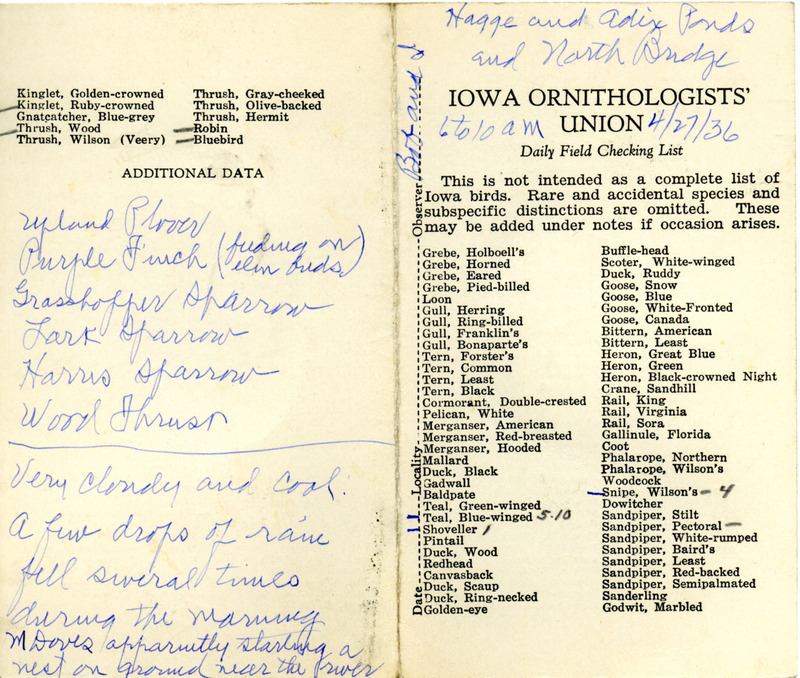 Kinglet, Golden-crowned
Kinglet, Ruby-crowned
Gnatcatcher, Blue-grey
Thrush, Wood
Thrush, Wilson (Veery)
Thrush, Gray-cheeked
Thrush, Olive-backed
Thrush, Hermit
Robin
Bluebird
ADDITIONAL DATA
Upland Plover
Purple Finch (feeding on elm buds)
Grasshopper Sparrow
Lark Sparrow
Harris Sparrow
Wood Thrush
Very cloudy and cool.
A few drops of rain
fell several times
during the morning
M Doves apparnitly starting a
nest on ground near the river
Hagge and Adix Ponds
and North Bridge
IOWA ORNITHOLOGISTS'
6 to 10 AM UNION 4/27/36
Daily Field Checking List
This is not intended as a complete list of
Iowa birds. Rare and accidental species and
subspecific distinctions are omitted. These
may be added under notes if occasion arises.
Date Locality Observer Bob and
Grebe, Holboell's
Grebe, Horned
Grebe, Eared
Grebe, Pied-billed
Loon
Gull, Herring
Gull, Ring-billed
Gull, Franklin's
Gull, Bonaparte's
Tern, Forster's
Tern, Common
Tern, Least
Tern, Black
Cormorant, Double-crested
Pelican, White
Merganser, American
Merganser, Red-breasted
Merganser, Hooded
Mallard
Duck, Black
Gadwall
Baldpate
Teal, Green-winged
Teal, Blue-winged 5-10
Shoveller 1
Pintail
Duck, Wood
Redhead
Canvasback
Duck, Scaup
Duck, Ring-necked
Golden-eye
Buffle-head
Scoter, White-winged
Duck, Ruddy
Goose, Snow
Goose, Blue
Goose, White-Fronted
Goose, Canada
Bittern, American
Bittern, Least
Heron, Great Blue
Heron, Green
Heron, Black-crowned Night
Crane, Sandhill
Rail, King
Rail, Virginia
Rail, Sora
Gallinule, Florida
Coot
Phalarope, Northern
Phalarope, Wilson's
Woodcock
Snipe, Wilson's - 4
Dowitcher
Sandpiper, Stilt
Sandpiper, Pectoral -
Sandpiper, White-rumped
Sandpiper, Baird's
Sandpiper, Least
Sandpiper, Red-backed
Sandpiper, Semipalmated
Sanderling
Godwit, Marbled